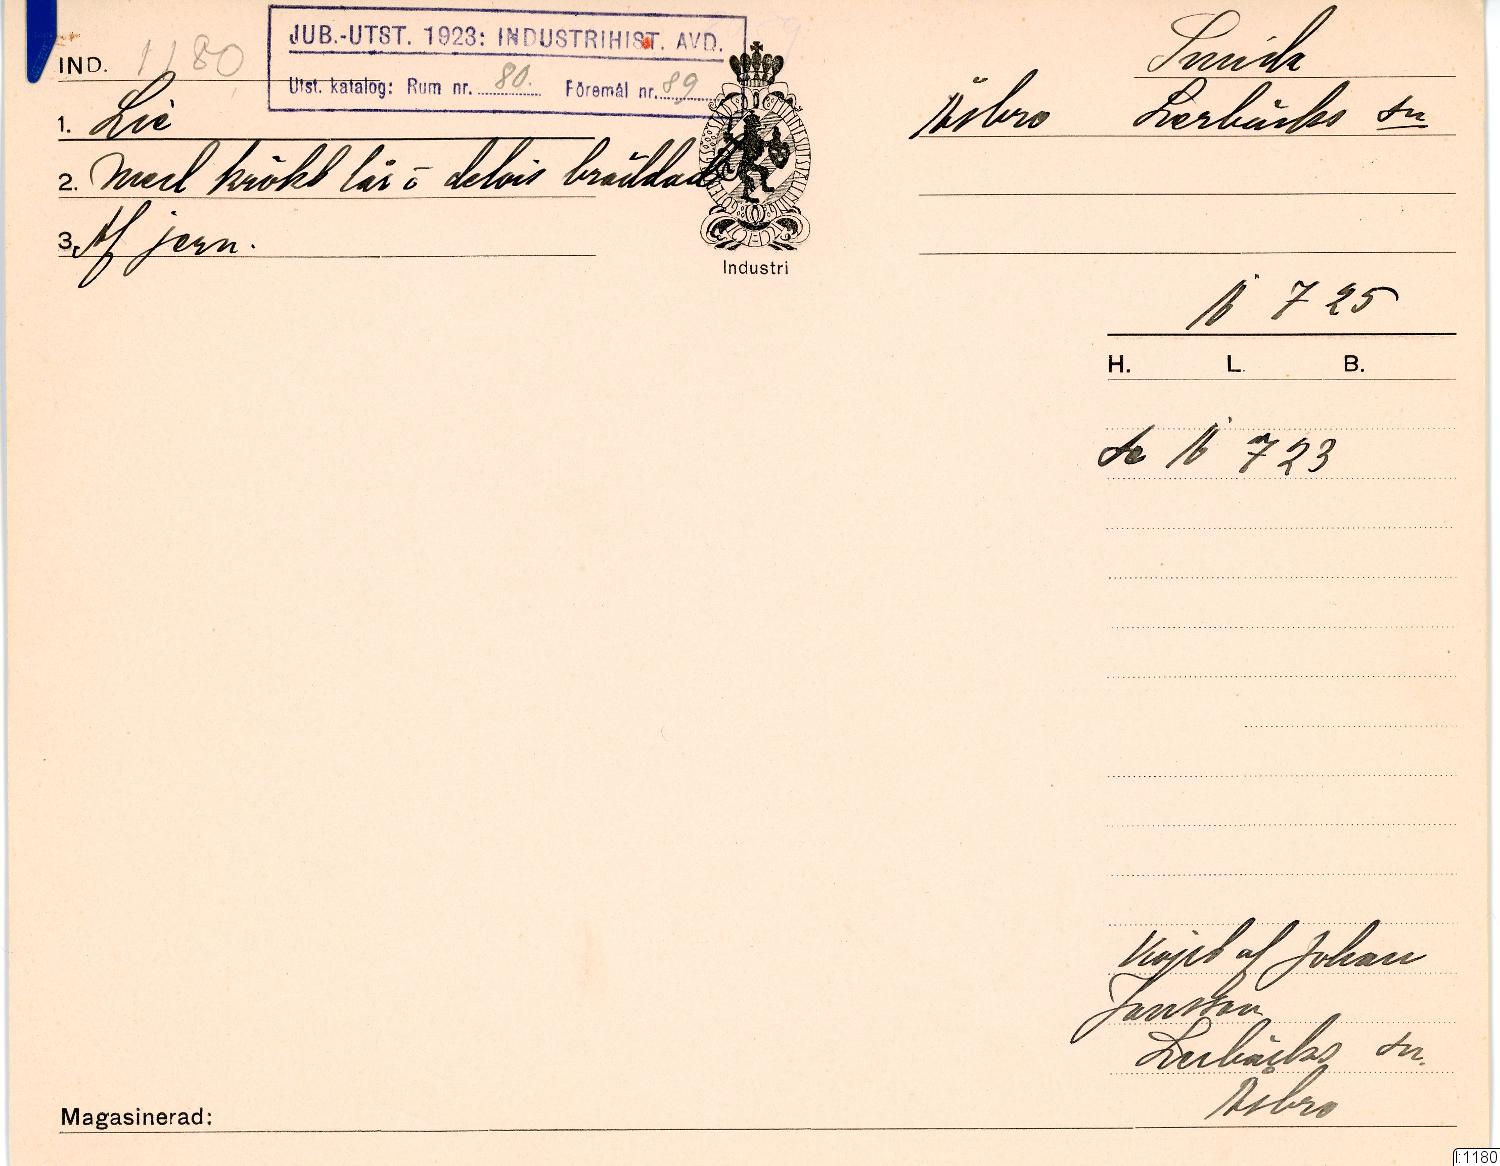 JUB.-UTST. 1923: INDUSTRIHIST. AVD.
Utst. katalog: Rum nr. 80. Föremål nr. 89
IND. 1180
1. Lie
2. med krökt lår o delvis bräddad
3. Af jern.
Industri
Smide
Åsbro Lerbäcks sn
N 725
H. L. B.
se N 723
Köpt af Johan
Jansson
Lerbäcks sn.
Åsbro
Magasinerad:
I:1180